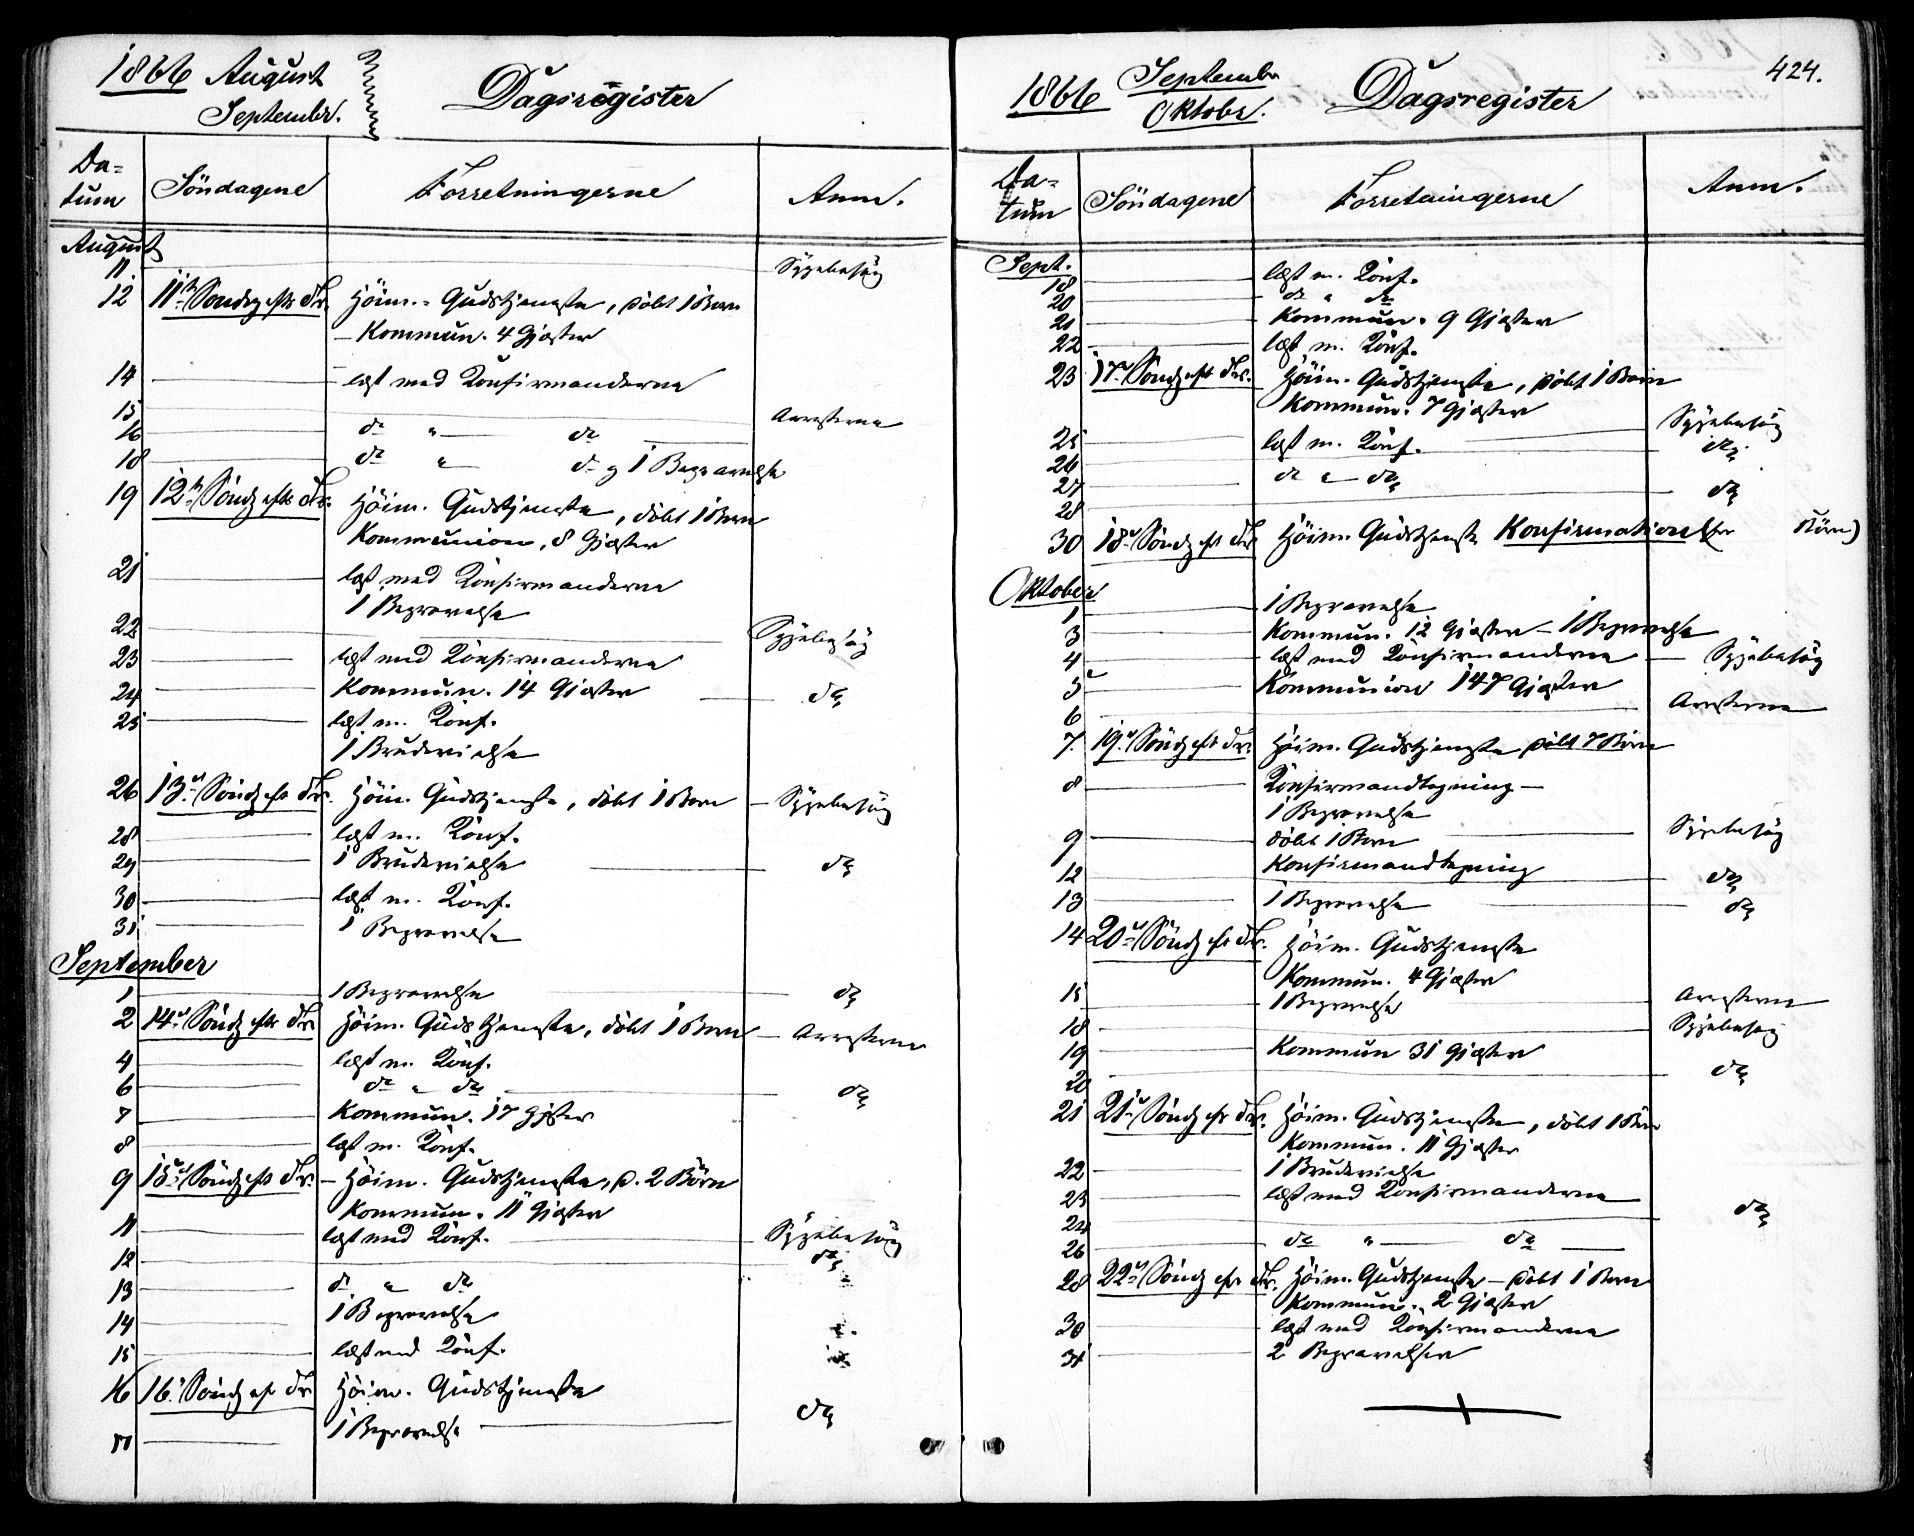 1866 August
Septembr.
Dagsregister
Da=
tum
Söndagene
Forretningerne
Anm.
August
11 Sygebesög
12 11te Söndg eftr Tr. Höim.= Gudstjeneste, döbt 1 Barn
Kommun. 4 Gjæster
14 læst med Konfirmanderne
15 Arresterne
16 do " do
18 do " do og 1 Begravelse
19 12te Söndg eftr Tr. Höim. Gudstjeneste, döbt 1 Barn
Kommunion, 8 Gjæster
21 læst med Konfirmanderne
1 Begravelse
22 Sygebesög
23 læst med Konfirmanderne
24 Kommun. 14 Gjæster do
25 læst m. Konf.
1 Brudevielse
26 13de Söndg eft Tr. Höim. Gudstjeneste, döbt 1 Barn – Sygebesög
28 læst m. Konf.
29 1 Brudevielse do
30 læst m. Konf.
31 1 Begravelse
September
1 1 Begravelse do
2 14de Söndg eftr Tr. Höim. Gudstjeneste, döbt 1 Barn – Arresterne
4 læst m. Konf.
6 do " do do
7 Kommun. 17 Gjæster
8 læst m. Konf.
9 15de Söndg eft Tr. – Höim. Gudstjeneste, d. 2 Börn
Kommun. 11 Gjæster
11 læst med Konf. Sygebesög
12 do
13 do " do
14 1 Begravelse
15 læst med Konf.
16 16. Söndg ef Tr. Höim. Gudstjeneste
1 Begravelse do
17
1866 Septembr
Oktobr.
Dagsregister
424.
Da=
tum
Söndagene
Forretningerne
Anm.
Sept.
18 læst m. Konf.
20 do " do
21 Kommun. 9 Gjæster
22 læst m. Konf.
23 17de Söndg eft Tr. Höim. Gudstjeneste, döbt 1 Barn
Kommun. 7 Gjæster
25 læst m. Konf. Sygebesög
26 do " do do
27
28 do
30 18de Söndg ef Tr Höim. Gudstjeneste Konfirmation Börn)
Oktober
1 1 Begravelse
3 Kommun. 12 Gjæster – 1 Begravelse
4 læst med Konfirmanderne – Sygebesög
5 Kommunion 147 Gjæster
6 Arresterne
7. 19de Söndg eft Tr. Höim. Gudstjeneste döbt 7 Börn
8 Konfirmandlæsning –
1 Begravelse
9 döbt 1 Barn Sygebesög
12 Konfirmandlæsning do
13 1 Begravelse do
14 20de Söndg ef Tr. Höim. Gudstjeneste
Kommun. 4 Gjæster
15 1 Begravelse Arresterne
18 Sygebesög
19 Kommun 31 Gjæster
20 do
21 21de Söndg ef Tr. Höim. Gudstjeneste, döbt 1 Barn
Kommun. 11 Gjæster
22 1 Brudevielse
23 læst med Konfirmanderne
24 do
26 do " do
28 22de Söndg efr Tr. Höim. Gudstjeneste – döbt 1 Barn
Kommun. 2 Gjæster
30 læst med Konfirmanderne
31 2 Begravelser